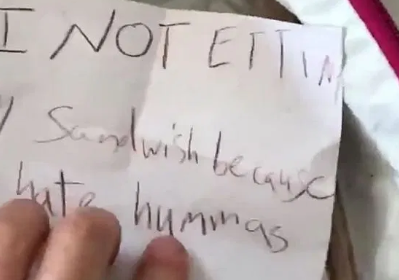 I NOT ETTIN
Sandwish because
hate hummas